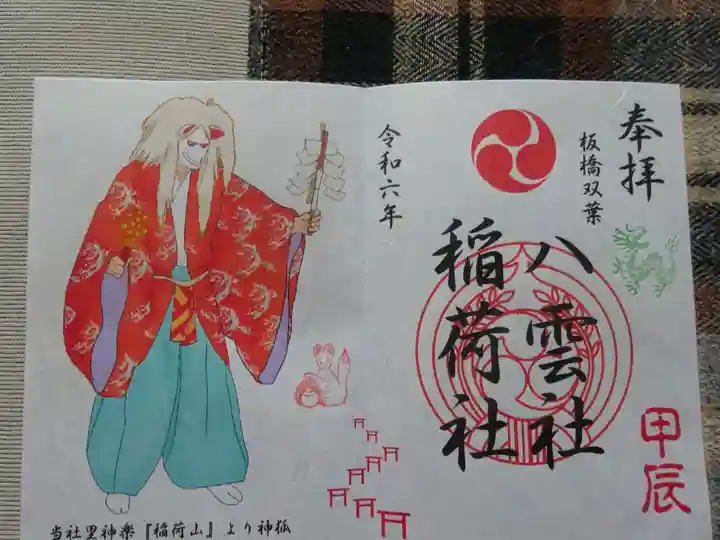 奉拝
板橋双葉
八雲社
稲荷社
甲辰
令和六年
当社里神楽『稲荷山』より神狐